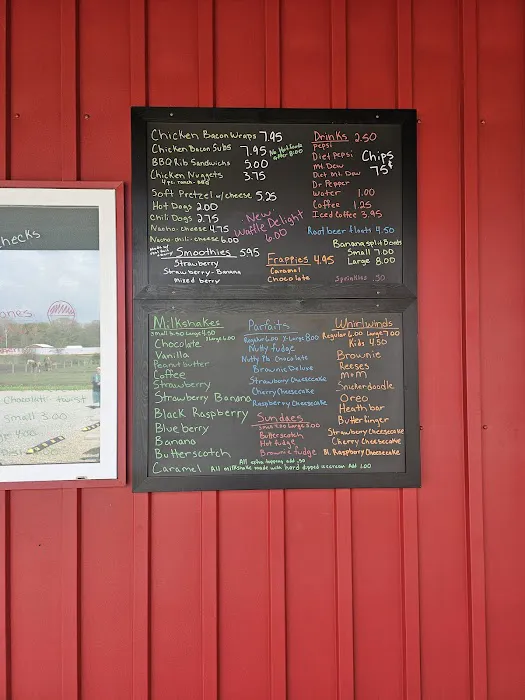 hecks
ones
Chocolate twist
Small 3.00
Chicken Bacon Wraps 7.95
Chicken Bacon Subs 7.95
No Hot foods after 8:00
BBQ Rib Sandwichs 5.00
Chicken Nuggets 3.75
4 pc. ranch - BBQ
Soft Pretzel w/cheese 5.25
Hot Dogs 2.00
Chili Dogs 2.75
Nacho-cheese 4.75
Nacho-chili-cheese 6.00
New
Waffle Delight
6.00
Smoothies 5.95
Strawberry
Strawberry-Banana
Mixed berry
Frappies 4.95
Caramel
Chocolate
Drinks 2.50
Pepsi
Diet Pepsi
Mt. Dew
Diet Mt. Dew
Dr Pepper
Water 1.00
Coffee 1.25
Iced Coffee 3.95
Chips
75¢
Root beer floats 4.50
Banana split Boats
Small 7.00
Large 8.00
Sprinkles .50
Milkshakes
Small 3.50 Large 4.50
Chocolate
Vanilla
Peanut butter
Coffee
Strawberry
Strawberry Banana
Black Raspberry
Blueberry
Banana
Butterscotch
Caramel
Parfaits
Regular 6.00 X-Large 8.00
Nutty fudge
Nutty Pb Chocolate
Brownie Deluxe
Strawberry Cheesecake
Cherry Cheesecake
Raspberry Cheesecake
Sundaes
Small 4.00 Large 5.00
Butterscotch
Hot fudge
Brownie fudge
Whirlwinds
Regular 6.00 Large 7.00
Kids 4.50
Brownie
Reeses
M+M
Snickerdoodle
Oreo
Heath bar
Butterfinger
Strawberry Cheesecake
Cherry Cheesecake
Bl. Raspberry Cheesecake
All extra topping add .50
All milkshake made with hard dipped icecream Add 1.00